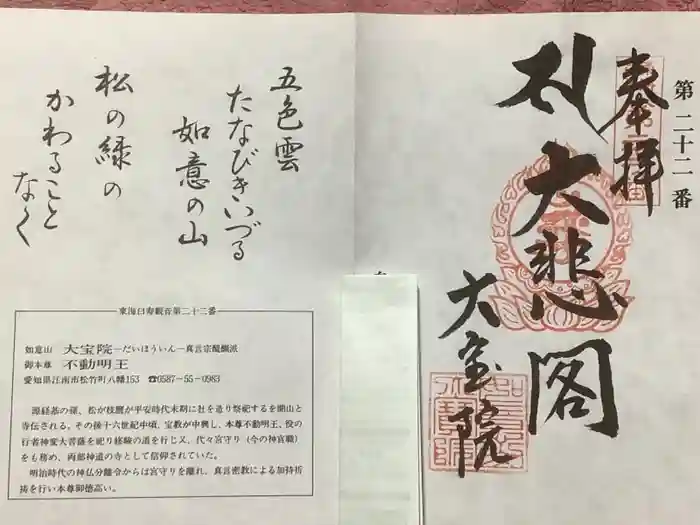 第二十二番
奉拝
大悲閣
大宝院
五色雲
たなびきいづる
如意の山
松の緑の
かわること
なく
東海白寿観音第二十二番
如意山 大宝院―だいほういん―真言宗醍醐派
御本尊 不動明王
愛知県江南市松竹町八幡153 ☎0587-55-0983
源経基の孫、松が枝麿が平安時代末期に社を造り祭祀するを開山と
寺伝される。その後十六世紀中頃、宝教が中興し、本尊不動明王、役の
行者神変大菩薩を祀り修験の道を行じ又、代々宮守り(今の神官職)
をも務め、両部神道の寺として信仰されていた。
明治時代の神仏分離令からは宮守りを離れ、真言密教による加持祈
祷を行い本尊御徳高い。